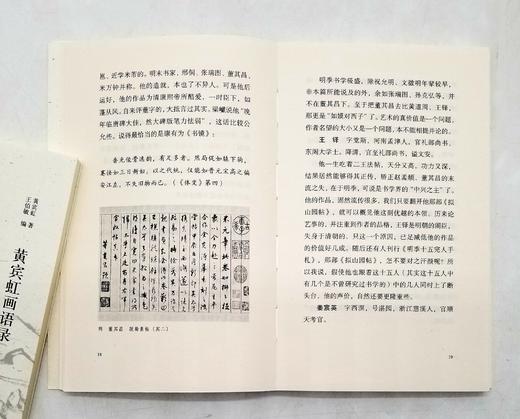 黄宾虹 著
王伯敏 编
黄宾虹画语录
崽,近学米芾的。明末书家,邢侗、张瑞图、董其昌、
米万钟并称。他的造就,本也了不异人。可是他后
运好,他的作品为清康熙帝所酷爱,一时臣下,如
蓬从风。自来评董字的,大抵言过其实。梁巘说他“晚
年临唐碑大佳,然大碑版笔力怯弱”,这话比较公
允些,待评最恰当的是康有为《书镜》:
香光俊骨逸韵,有足多者。然局促如辕下驹,
蹇怯如三日新妇。以之代统,仅能如晋元宋高之偏
安江左,不失旧物而已。(《体变》第四)
董其昌
18
明季书学极盛,除祝允明、文徵明年辈较早,
非本篇所能说及的外,余如张瑞图、孙克弘等,并
不在董其昌下。至于把董其昌去比黄道周、王铎,
那更是“如嫫对西子”了。艺术的真价值是一个问题,
作者名望的大小又是一个问题,本不能相提并论的。
王铎 字觉斯,河南孟津人。官礼部尚书,
东阁大学士。降清,官至礼部尚书,谥文安。
他一生吃着二王法帖,天分又高,功力又深,
结果居然能得其正传,矫正赵孟頫、董其昌的末
流之失,在于明季,可说是书学界的“中兴之主”了。
他的作品,固然流传很多,我们只要翻开他那部《拟
山园帖》,就可以概见他这副优越的本领。历来论
艺事的,并注重到作者的品格,王铎是明朝的阁臣,
失身于清朝的,只这一个原因,已足减低他的作品
的价值好几成。随后还有人刊行《明季十五完人手
札》,那部《拟山园帖》,怎不要对之汗颜呢!所
以我说,假使他也跟着这十五人(其实这十五人中
有几个是不曾研究过书学的)中的几人同时上了断
头台,他的声价,自然还要隆重些。
姜宸英 字西溟,号湛园,浙江慈溪人,官顺
天考官。
19